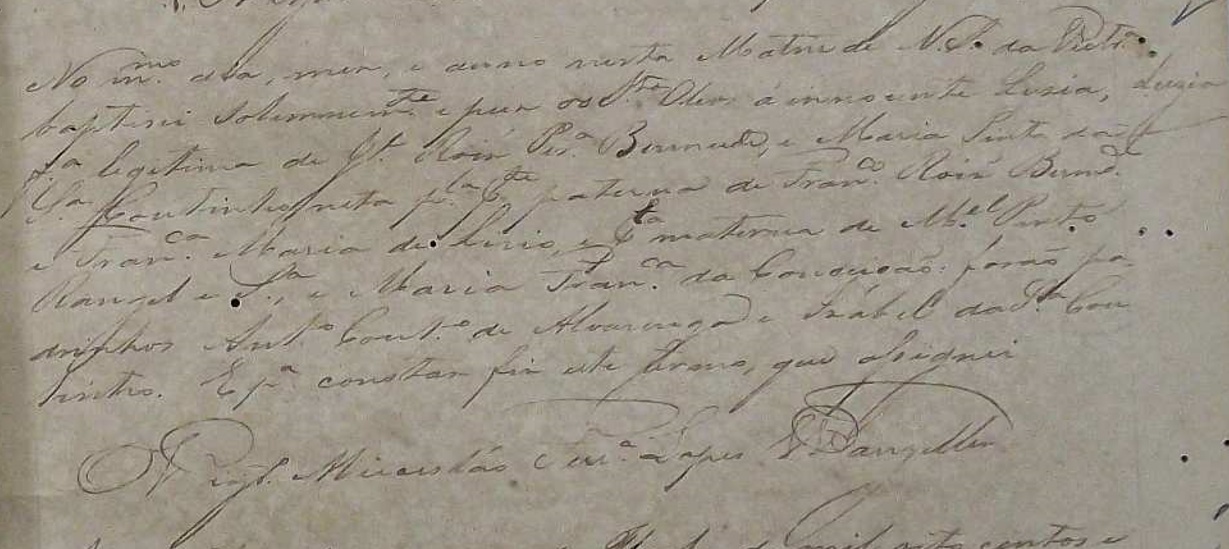 No m.mo dia, mez, e anno nesta Matriz de N. S. da Pied.e
baptizei solemnem.te e puz os S.tos Oleos á innocente Luzia, Luzia
f.a legitima de J.e Roiz Per.a Bermudes, e Maria Pinto da
S.a Coutinho, neta p.la p.te paterna de Fran.co Roiz Bermd.
e Fran.ca Maria de Lirio, e p.la materna de M.el Pinto
Rangel e S.a, e Maria Fran.ca da Conceição: forão pa
drinhos Ant.o Cout.o de Alvarenga e Izabel da S.a Cou
tinho. E p.a constar fiz este termo, que assignei
O Vig.o Miceslás Ferr.a Lopes Wanzeller
de mil oito centos e